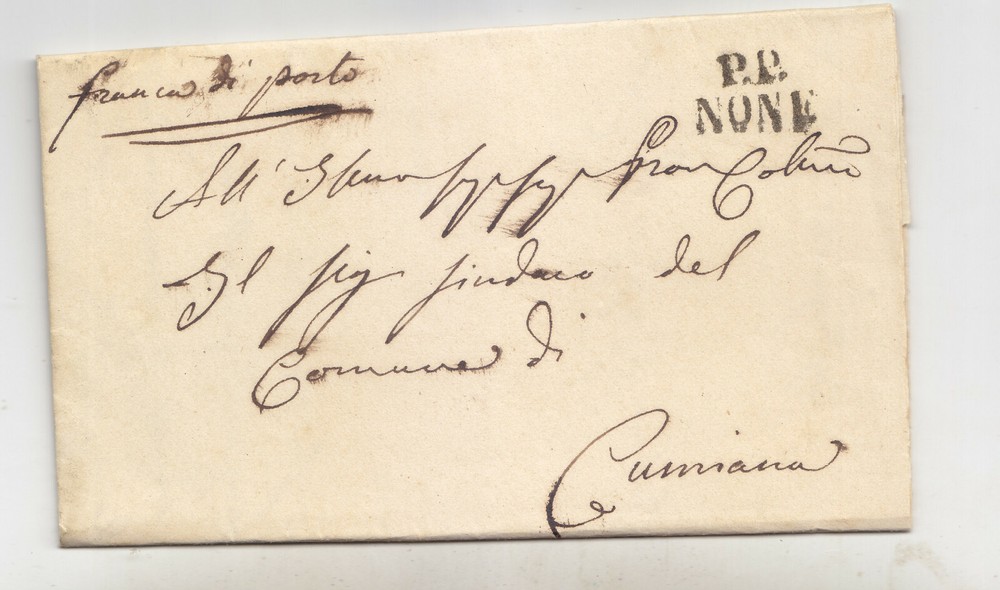 franca di porto
P.P.
NONE
All' Illmo Sig Sig Pron Colmo
Il Sig Sindaco del
Comune di
Cumiana